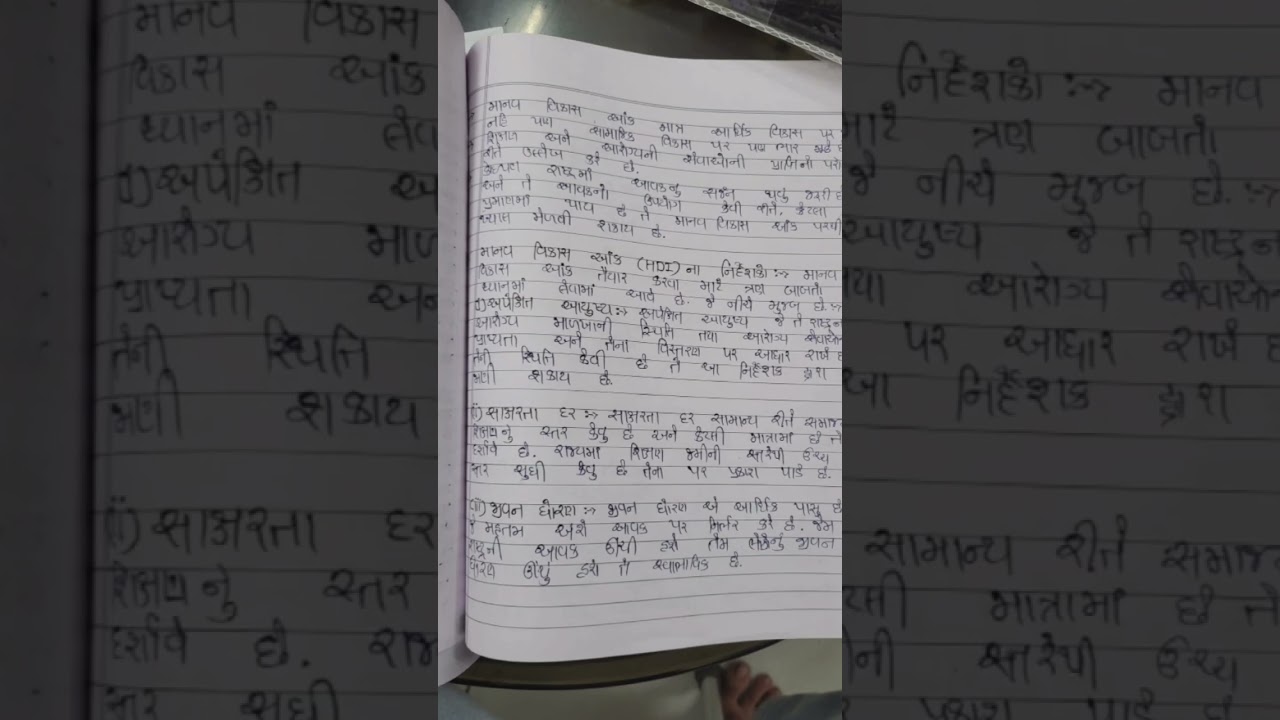 માનવ વિકાસ આંક માત્ર આર્થિક વિકાસ પર
નહિ પણ સામાજિક વિકાસ પર પણ ભાર મૂકે છે
શિક્ષણ અને આરોગ્યની સેવાઓની પ્રાપ્તિનો
રીતે ઉલ્લેખ કરે છે.
રાષ્ટ્રમાં આવકનું સર્જન થવું જરૂરી છે
અને તે આવકનો ઉપયોગ કેવી રીતે, કેટલા
પ્રમાણમાં થાય છે તે માનવ વિકાસ આંક પરથી
ખ્યાલ મેળવી શકાય છે.
માનવ વિકાસ આંક (HDI) ના નિર્દેશકો :→ માનવ
વિકાસ આંક તૈયાર કરવા માટે ત્રણ બાબતો
ધ્યાનમાં લેવામાં આવે છે. જે નીચે મુજબ છે :→
(i) અપેક્ષિત આયુષ્ય :→ અપેક્ષિત આયુષ્ય જે તે રાષ્ટ્રના
આરોગ્ય માળખાની સ્થિતિ તથા આરોગ્ય સેવાઓની
પ્રાપ્યતા અને તેના વિસ્તરણ પર આધાર રાખે છે
તેની સ્થિતિ કેવી છે તે આ નિર્દેશક દ્વારા
માપી શકાય છે.
(ii) સાક્ષરતા દર :→ સાક્ષરતા દર સામાન્ય રીતે સમાજ
શિક્ષણનું સ્તર કેવું છે અને કેટલી માત્રામાં છે તે
દર્શાવે છે. રાજ્યમાં શિક્ષણ જમીની સ્તરેથી ઉચ્ચ
સ્તર સુધી કેવું છે તેના પર પ્રકાશ પાડે છે.
(iii) જીવન ધોરણ :→ જીવન ધોરણ એ આર્થિક પાસુ છે
જે મહત્તમ અંશે આવક પર નિર્ભર કરે છે. જેમ
રાષ્ટ્રની આવક ઊંચી હશે તેમ લોકોનું જીવન
ધોરણ ઊંચું હશે તે સ્વાભાવિક છે.